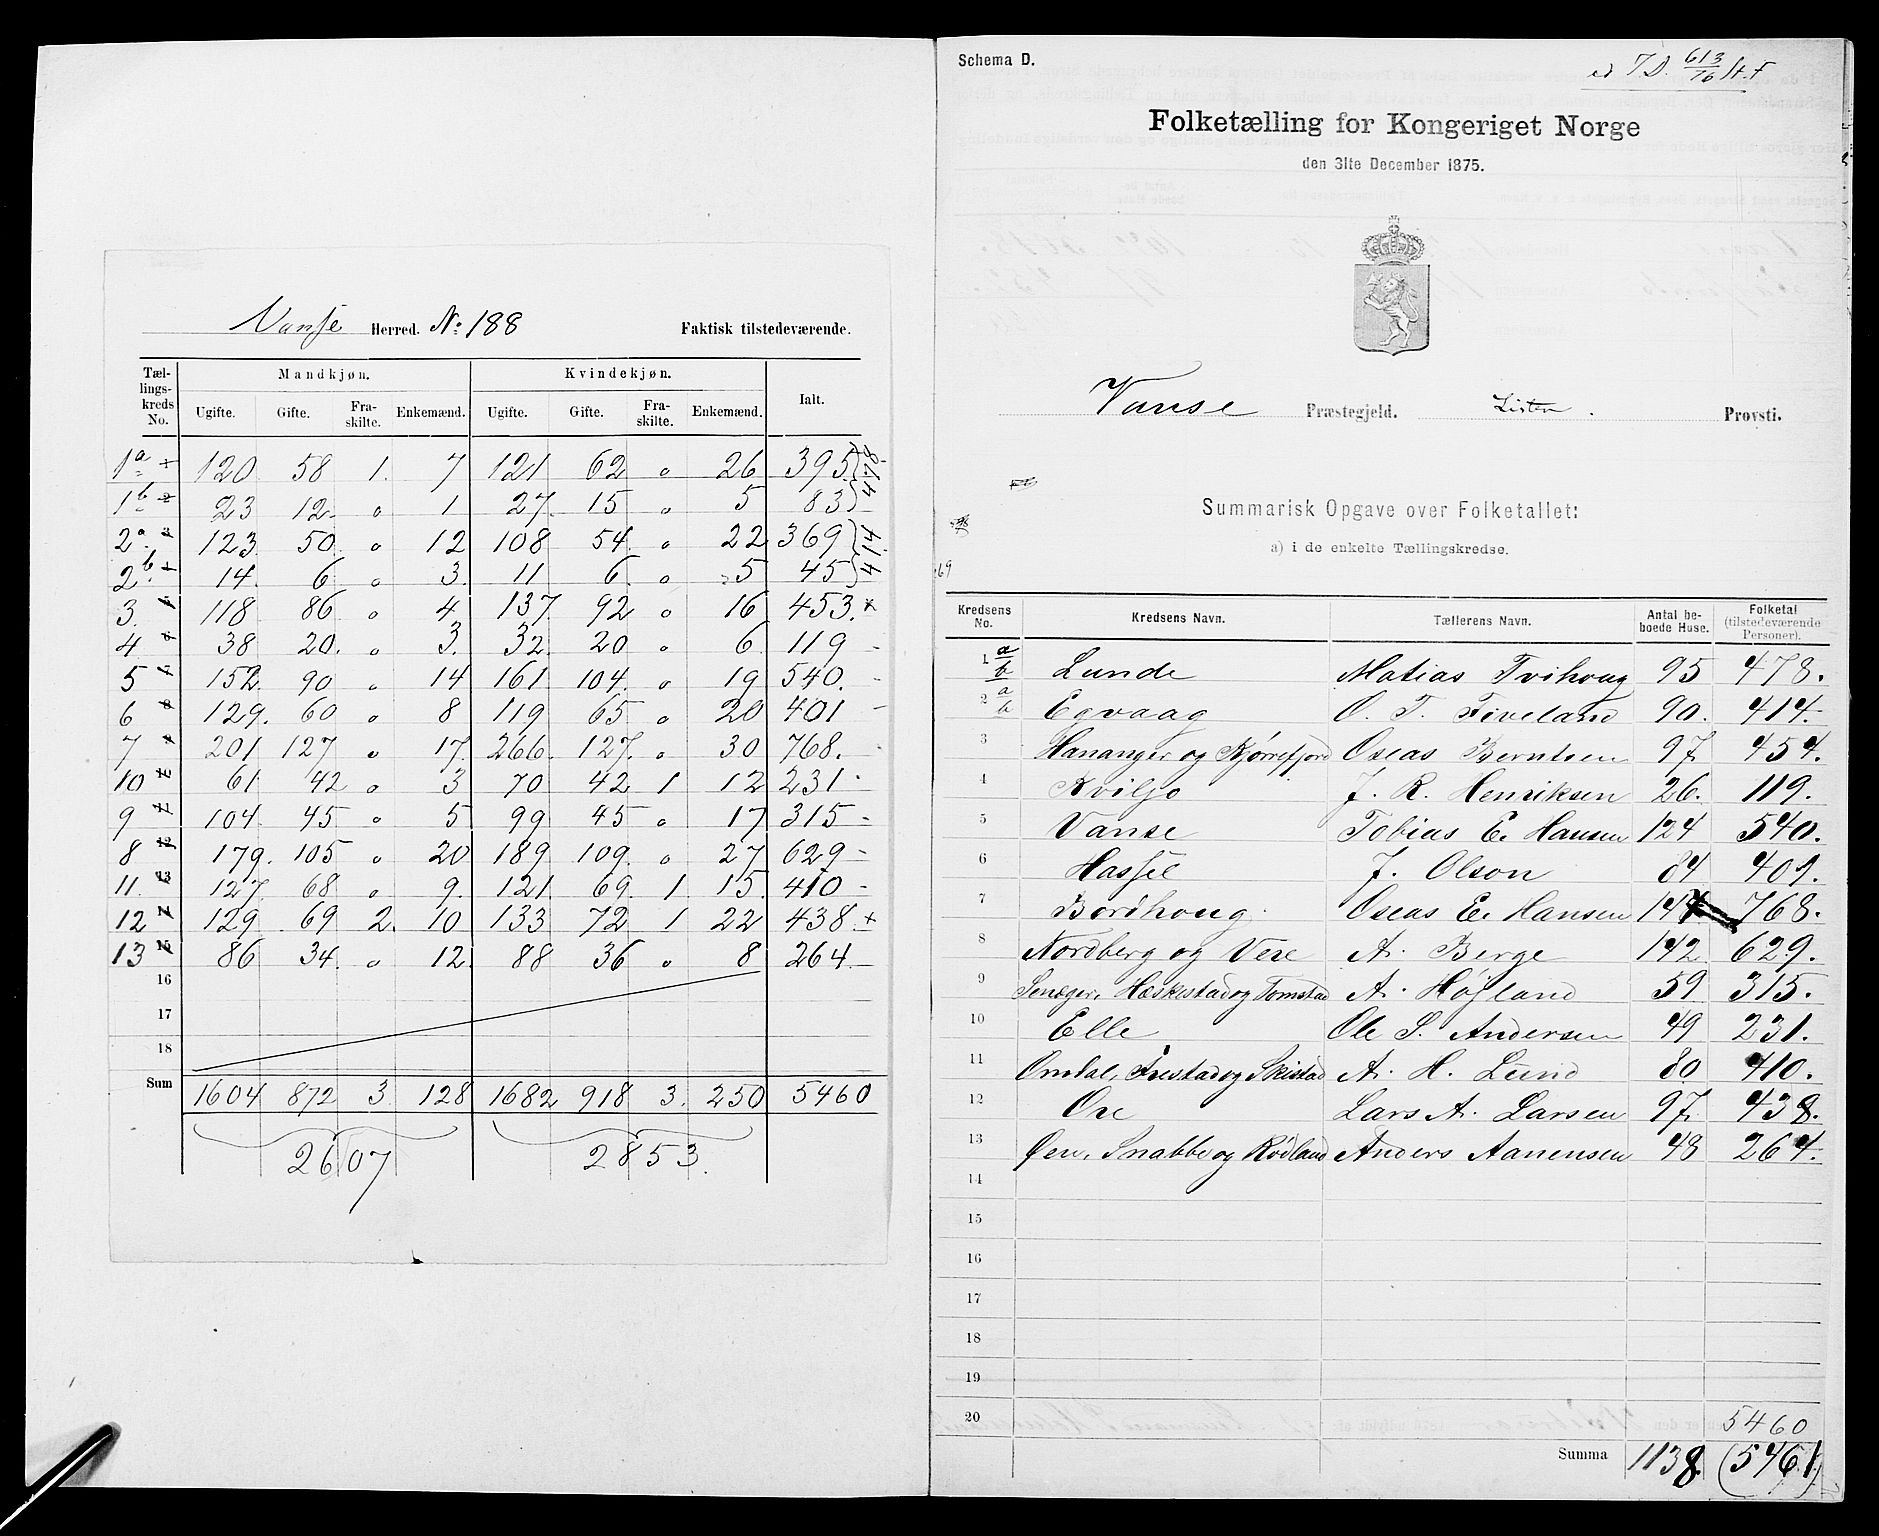 Vanse Herred. No: 188 Faktisk tilstedeværende.
Tællingskreds No. Mandkjøn. Kvindekjøn. Ialt.
Ugifte. Gifte. Fraskilte. Enkemænd. Ugifte. Gifte. Fraskilte. Enkemænd.
1a 120 58 1. 7 121 62 " 26 395 } 478
1b 23 12. " 1 27. 15 " 5 83
2a. 123 50. " 12 108 54. " 22 369 } 414
2b. 14. 6 " 3. 11 6. " 5 45
3. 118 86 " 4 137. 92 " 16 453. x
4 38 20. " 3. 32. 20 " 6 119 -
5 152. 90 " 14 161 104. " 19 540. -
6 129. 60 " 8 119 65 " 20 401 -
7 201 127 " 17. 266. 127. " 30 768. -
10 61 42 " 3 70 42 1 12 231 -
9 104. 45 " 5 99 45 " 17 315 -
8 179. 105 " 20 189 109. " 27 629 -
11. 127. 68 " 9. 121. 69. 1 15. 410 -
12 129 69 2. 10 133 72 1 22 438. +
13 86 34. " 12. 88 36 " 8 264. -
16
17
18
Sum 1604 872 3. 128 1682 918 3. 250 5460
2607 2853.
Schema D.
613/76
Folketælling for Kongeriget Norge
den 31te December 1875.
Vanse Præstegjeld. Lister Provsti.
Summarisk Opgave over Folketallet:
a) i de enkelte Tællingskredse.
Kredsens No. Kredsens Navn. Tællerens Navn. Antal beboede Huse. Folketal (tilstedeværende Personer).
1. a b Lunde Matias Tvihoug 95 478.
2 a b Egvaag O. T. Fiveland 90. 414.
3 Hananger og Kjørrefjord Oseas Berntsen 97. 454.
4 Kviljo J. R. Henriksen 26. 119.
5 Vanse Tobias E. Hansen 124 540.
6 Hassel J. Olson 84 401.
7 Bordhoug. Oseas E. Hansen 768.
8 Nordberg og Vere A. Berge 142 629.
9 Tomstad A. Högland 59 315.
10 Elle Ole S. Andersen 49 231.
11 Omdal, Frestad og Skistad A. H. Lund 80 410.
12 Ore Lars A. Larsen 97. 438.
13 Øen, Snabbe og Rødland Anders Aanensen 48 264.
14
15
16
17
18
19
20 5460
Summa 1138 (5461)